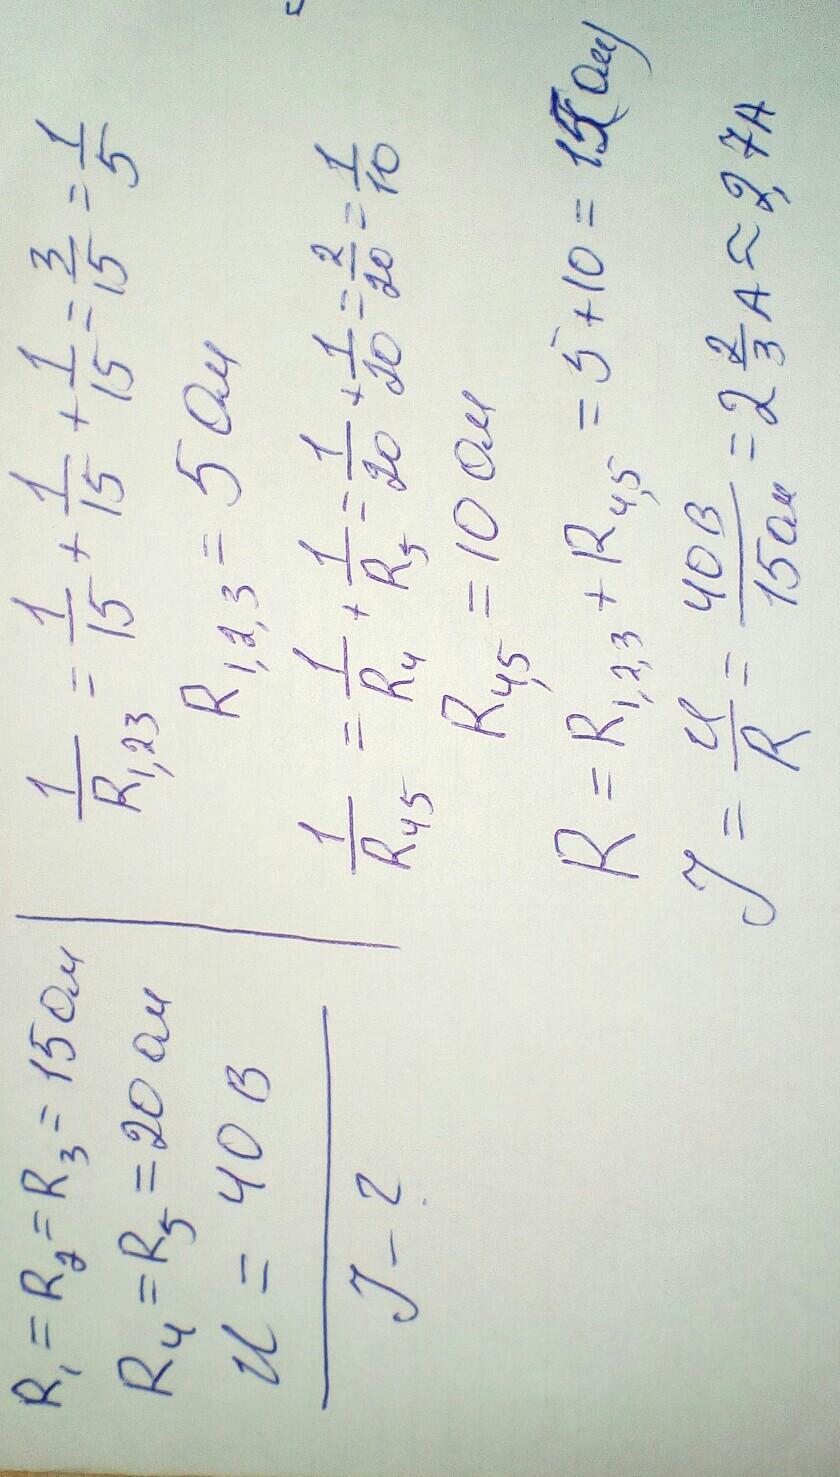 R₁ = R₂ = R₃ = 15 Ом
R₄ = R₅ = 20 Ом
U = 40 В
J - ?
1/R₁,₂₃ = 1/15 + 1/15 + 1/15 = 3/15 = 1/5
R₁,₂,₃ = 5 Ом
1/R₄₅ = 1/R₄ + 1/R₅ = 1/20 + 1/20 = 2/20 = 1/10
R₄,₅ = 10 Ом
R = R₁,₂,₃ + R₄,₅ = 5 + 10 = 15 (Ом)
J = U/R = 40 В/15 Ом = 2 2/3 А ≈ 2,7 А